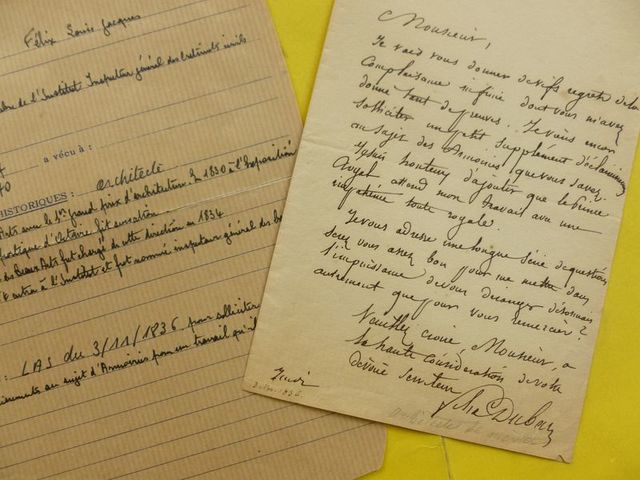 Félix Louis Jacques
de l'Institut Inspecteur général des
70
a vécu à :
HISTORIQUES : architecte
Arts avec le 1er grand prix d'architecture. En 1830 à l'Exposition
fit sensation.
des Beaux Arts fut chargé de cette direction en 1834
entra à l'Institut et fut nommé inspecteur général des
: LAS du 3/11/1836 pour solliciter
au sujet d'Armoiries pour un travail qu'il
Monsieur,
Je vais vous donner de vifs regrets de la
Complaisance infinie dont vous m'avez
donné tant de preuves. Je viens encore
solliciter un petit supplément d'éclaircissemens
au sujet des Armoiries que vous savez.
Je suis honteux d'ajouter que le Prince
Royal attend mon travail avec une
impatience toute royale.
Je vous adresse une longue série de questions
serez vous assez bon pour me mettre dans
l'impuissance de vous déranger désormais
autrement que pour vous remercier?
Veuillez croire, Monsieur, à
la haute considération de votre
dévoué serviteur
Jeudi
3 nov. 1836.
Duban